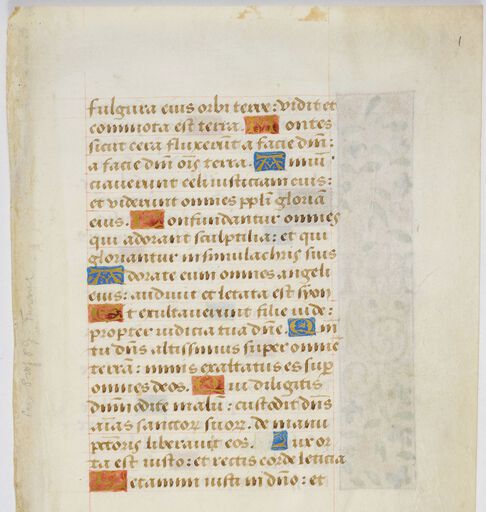 1
fulgura eius orbi terre: vidit et
commota est terra. Montes
sicut cera fluxerunt a facie dñi:
a facie dñi oīs terra. Annū
ciaverunt celi iusticiam eius:
et viderunt omnes pplī gloriā
eius. Confundantur omnes
qui adorant sculptilia: et qui
gloriantur in simulachris suis
Adorate eum omnes angeli
eius: audivit et letata est syon
Et exultaverunt filie iude:
propter iudicia tua dñe. Qm̄
tu dñs altissimus super omnē
terrā: nimis exaltatus es sup
omnes deos. Qui diligitis
dñm odite malū: custodit dñs
aīas sanctoꝝ suoꝝ. de manu
pctoris liberavit eos. Lux or
ta est iusto: et rectis corde leticia
Letamini iusti in dño: et